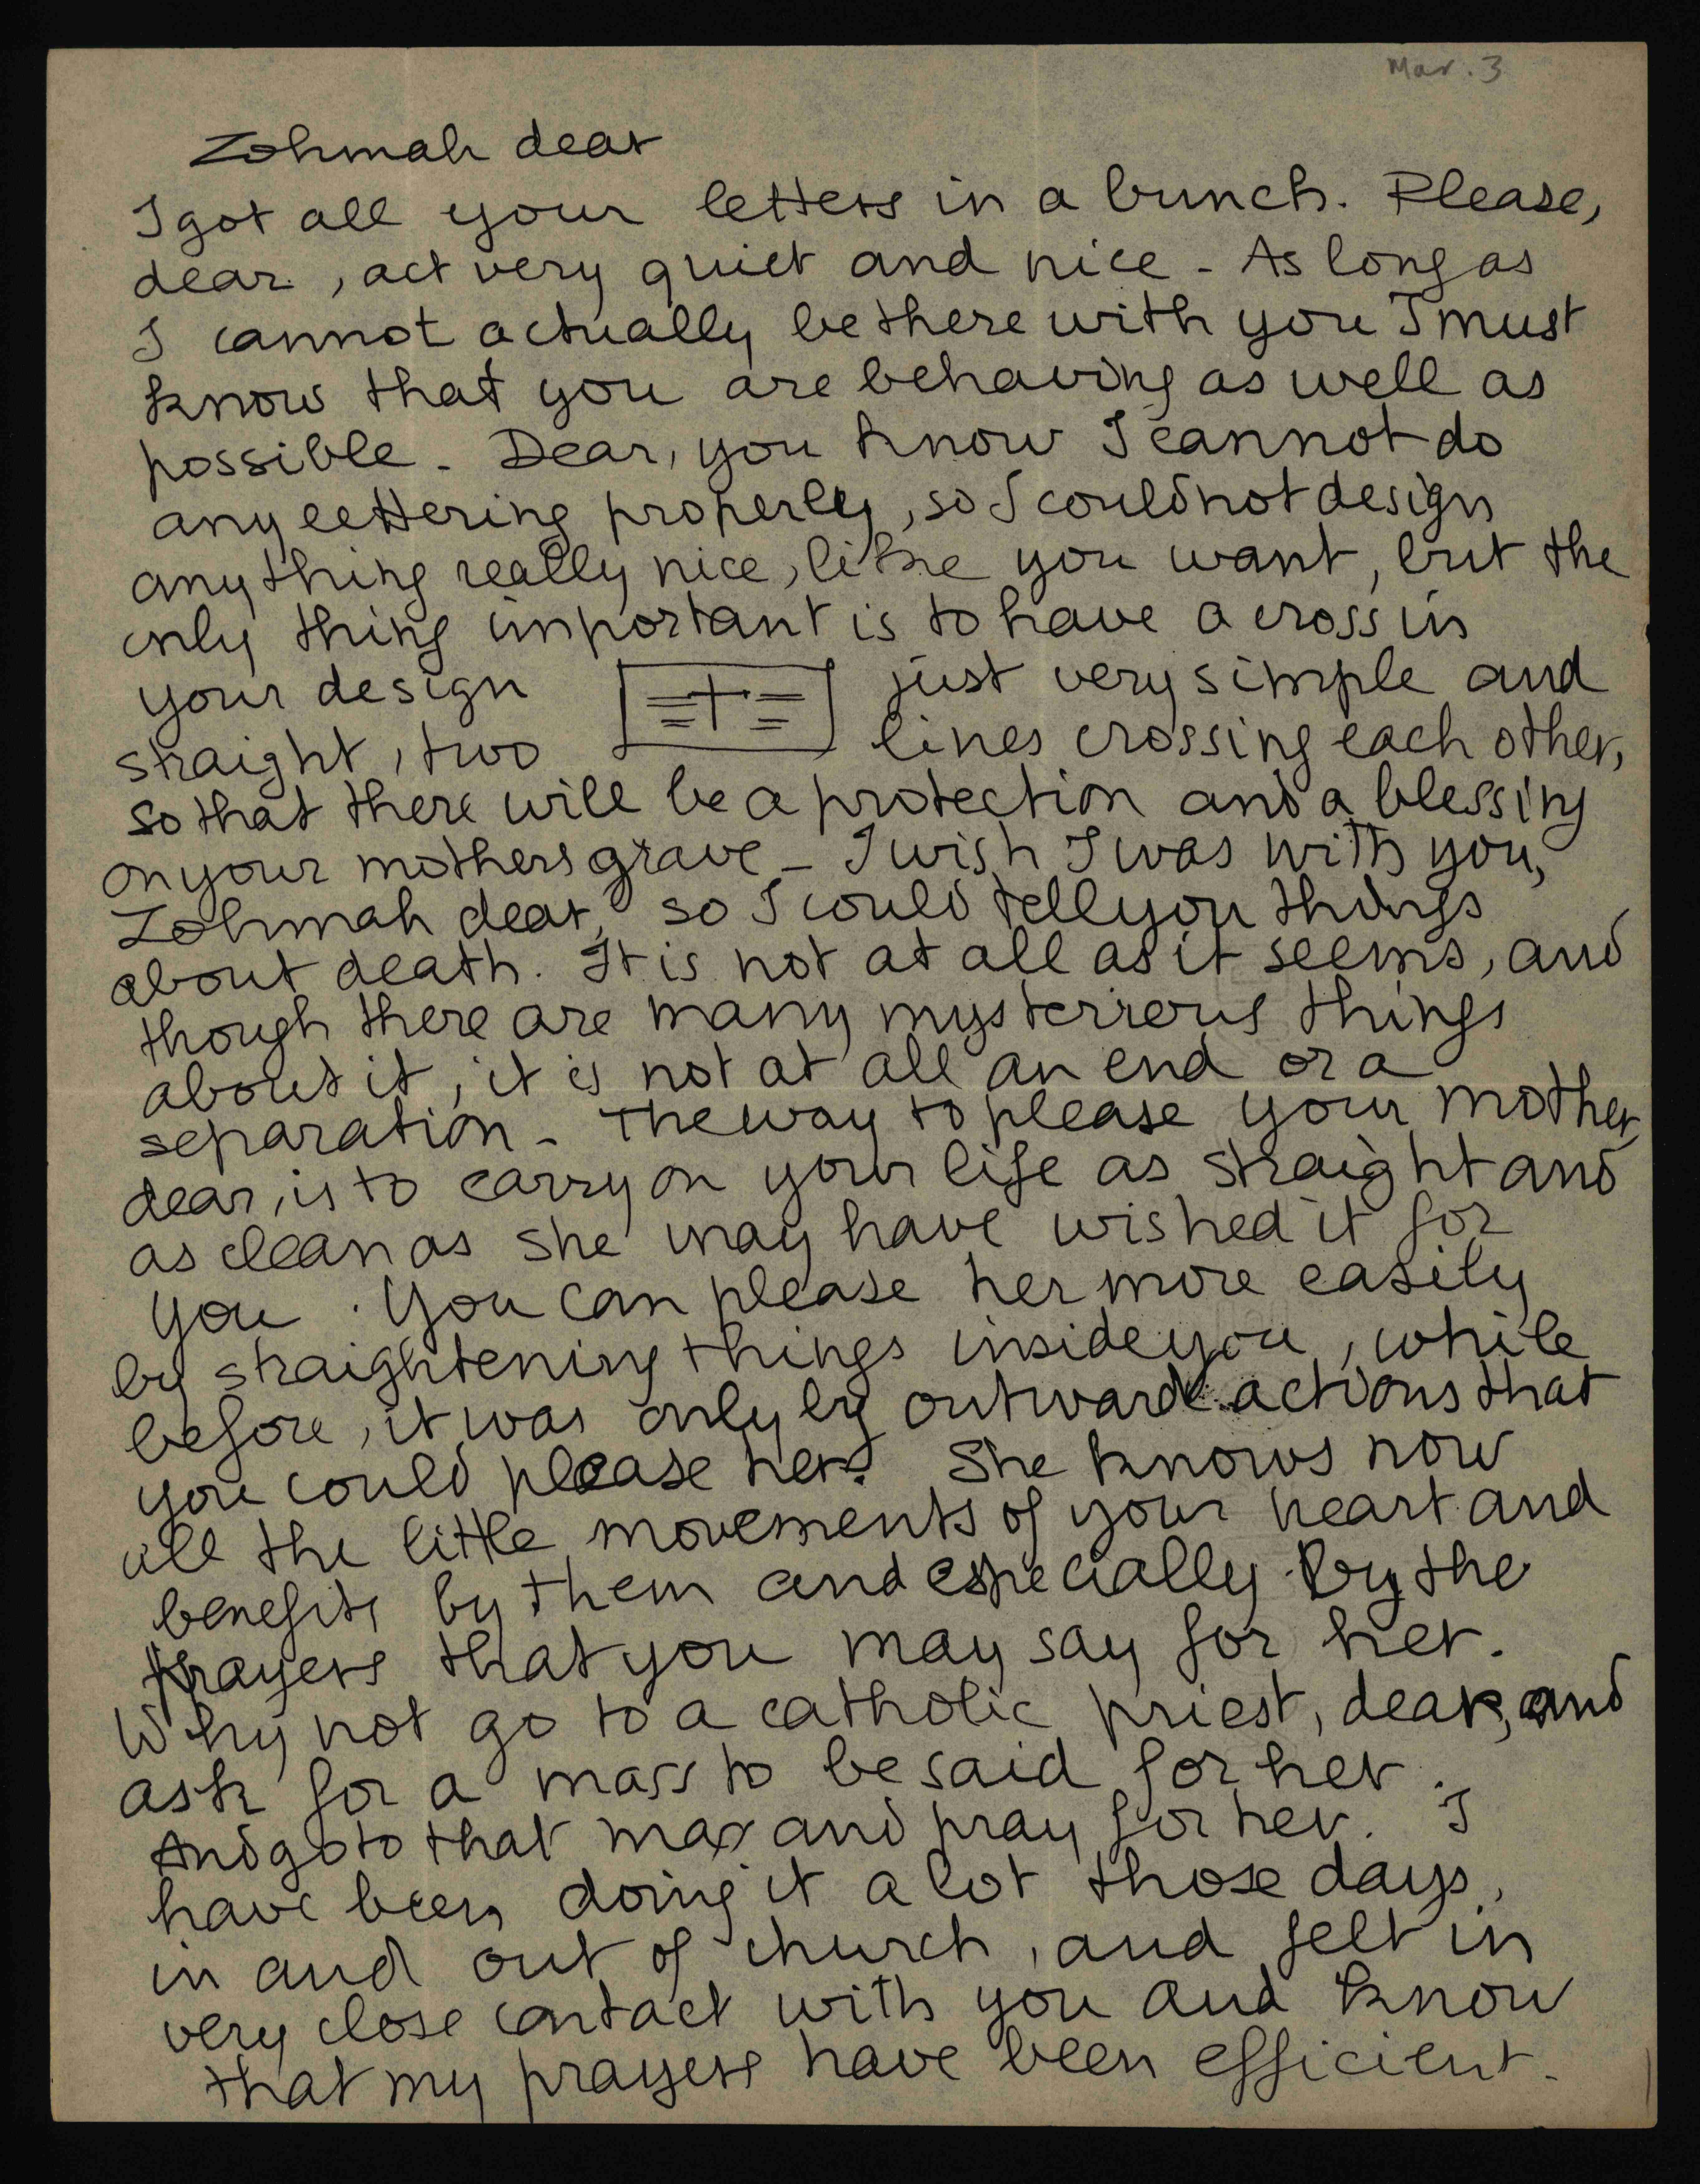 Mar. 3
Zohmah dear
I got all your letters in a bunch. Please,
dear, act very quiet and nice - As long as
I cannot actually be there with you I must
know that you are behaving as well as
possible - Dear, you know I cannot do
any lettering properly, so I could not design
any thing really nice, like you want, but the
only thing important is to have a cross in
your design just very simple and
straight, two lines crossing each other,
so that there will be a protection and a blessing
on your mothers grave - I wish I was with you,
Zohmah dear, so I could tell you things
about death. It is not at all as it seems, and
though there are many mysterious things
about it, it is not at all an end or a
separation - The way to please your mother,
dear, is to carry on your life as straight and
as clean as she may have wished it for
you. You can please her more easily
by straightening things inside you, while
before, it was only by outward actions that
you could please her. She knows now
all the little movements of your heart and
benefits by them and especially by the
prayers that you may say for her.
Why not go to a catholic priest, dear, and
ask for a mass to be said for her.
And go to that mass and pray for her. I
have been doing it a lot those days,
in and out of church, and felt in
very close contact with you and know
that my prayers have been efficient.